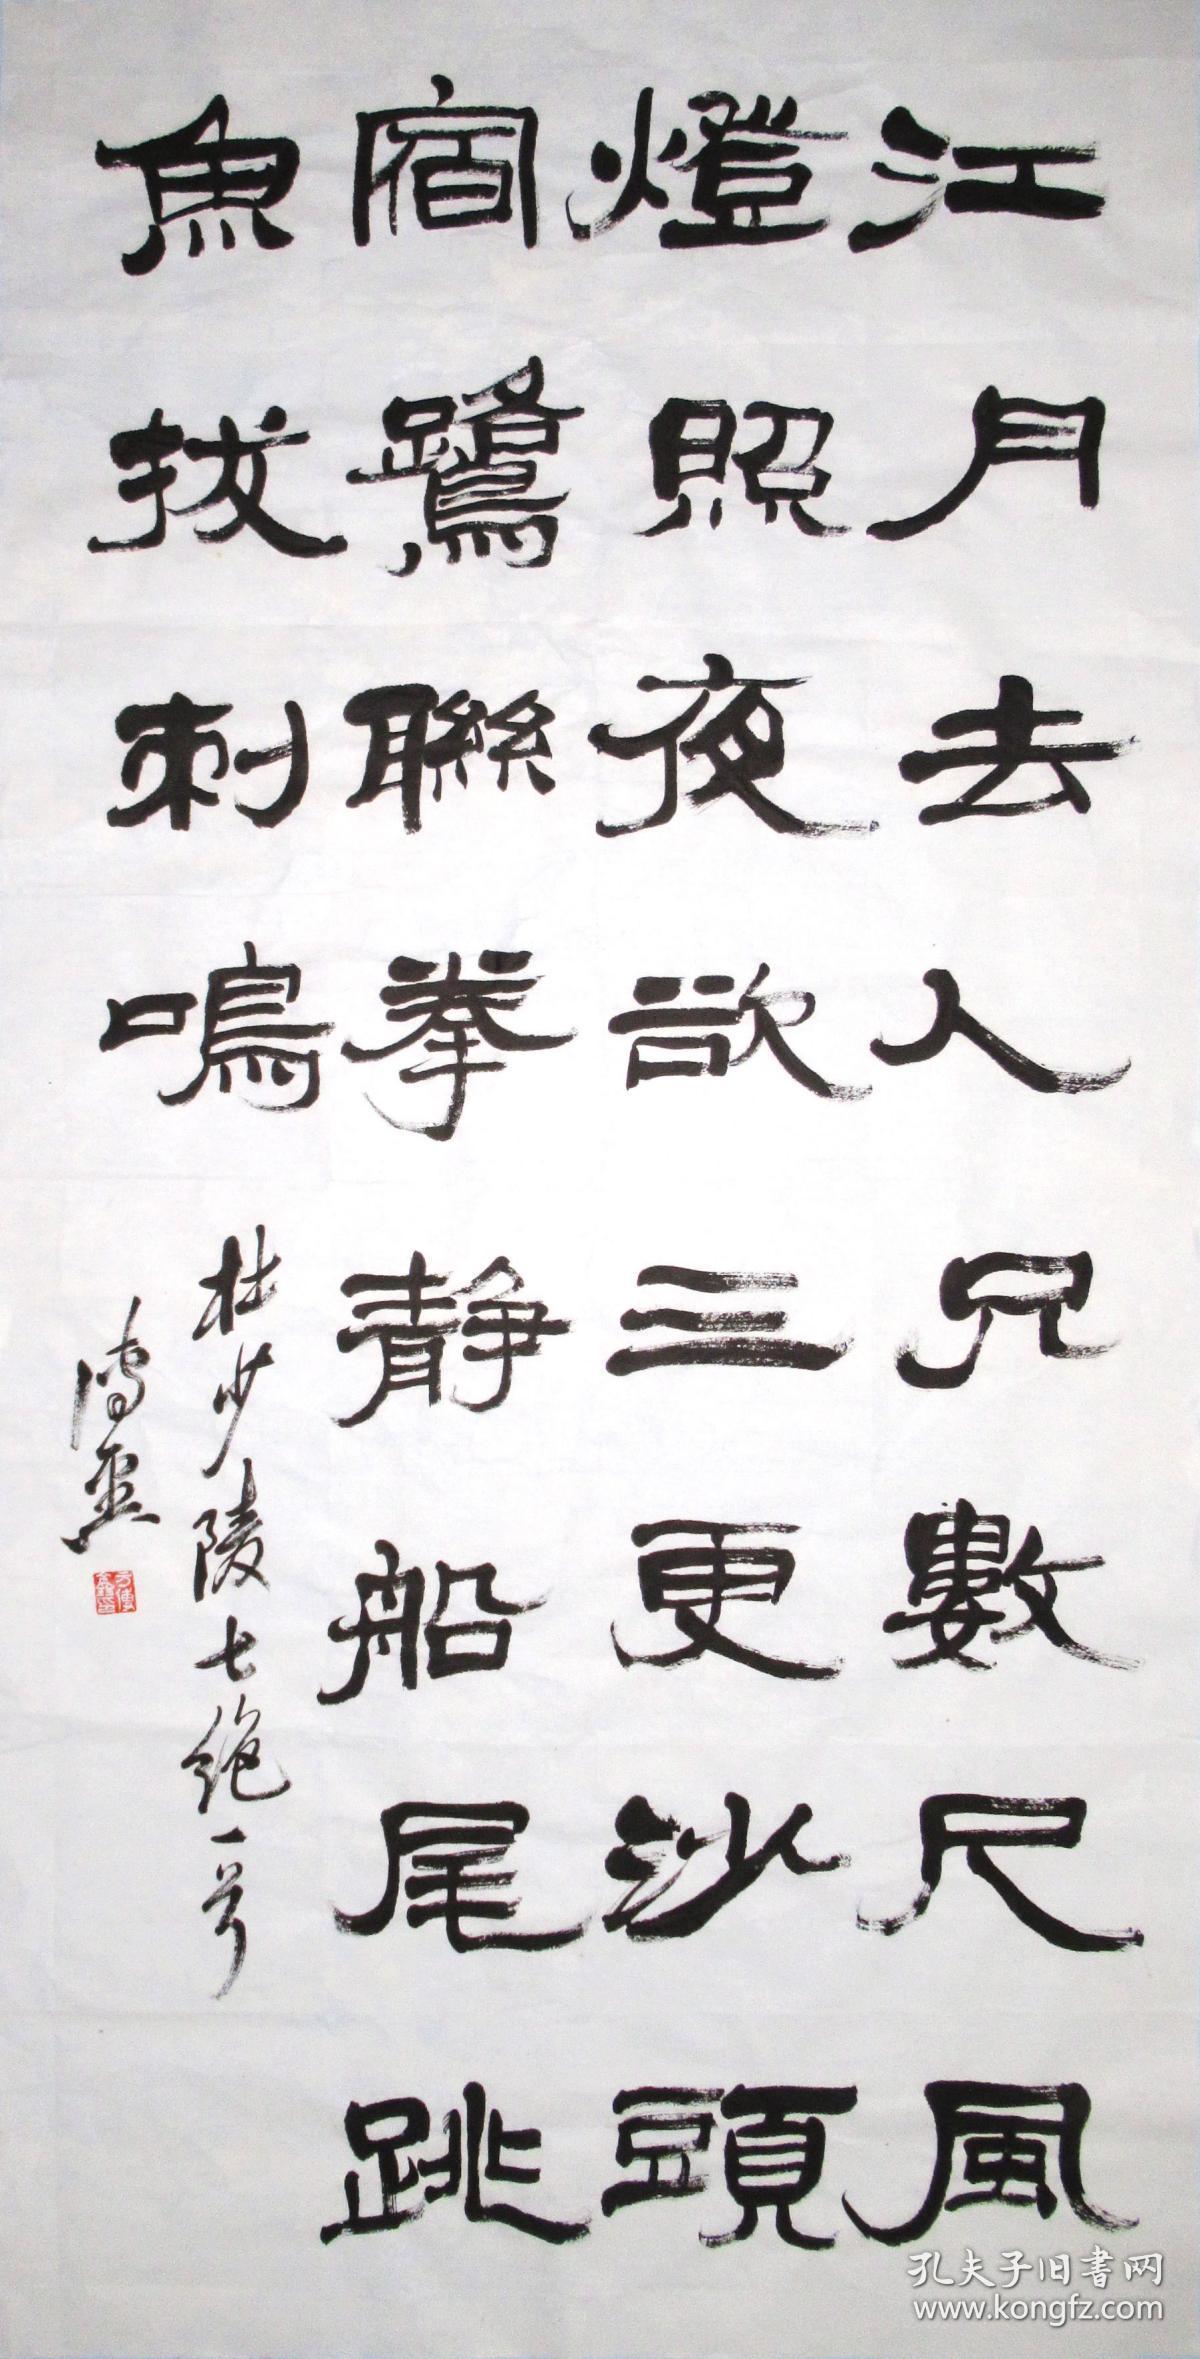 江月去人只數尺風
燈照夜欲三更沙頭
宿鷺聯拳靜船尾跳
魚拔刺鳴
杜少陵七絕一首
傅
孔夫子旧書网
www.kongfz.com